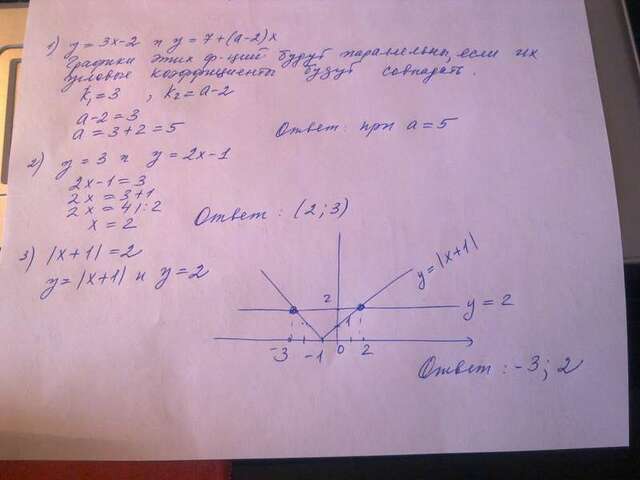 1) y = 3x-2 и y = 7+(a-2)x
Графики этих ф-ций будут параллельны, если их
угловые коэффициенты будут совпадать.
k₁=3 , k₂=a-2
a-2=3
a=3+2=5
Ответ: при a=5
2) y=3 и y=2x-1
2x-1=3
2x=3+1
2x=4|:2
x=2
Ответ: (2;3)
3) |x+1|=2
y=|x+1| и y=2
y=|x+1|
2
y=2
1
-3 -1 0 2
Ответ: -3; 2